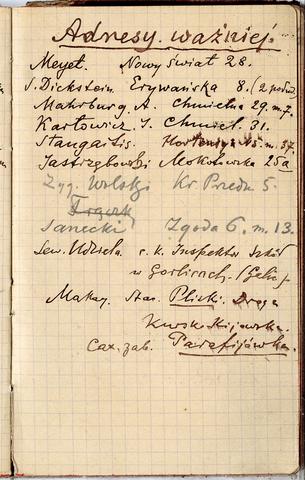 Adresy ważniej.
Meyet. Nowy świat 28.
S. Dickstein. Erywańska 8. (2 podw.
Mahrburg. A. Chmielna 29. m. 7.
Karłowicz. J. Chmiel. 31.
Staugaitis. 15 m. 37.
Jastrzębowski Mokotowska 25a
Zyg. Wolski Kr. Przedm 5.
Sarecki Zgoda 6. m. 13.
Sew. Udziela c. k. Inspektor Szkół
w Gorlicach. (Galic.
Makay. Star. Plisk. Droga
Kursk-Kijowska.
Cax. zab. Parafijówka.